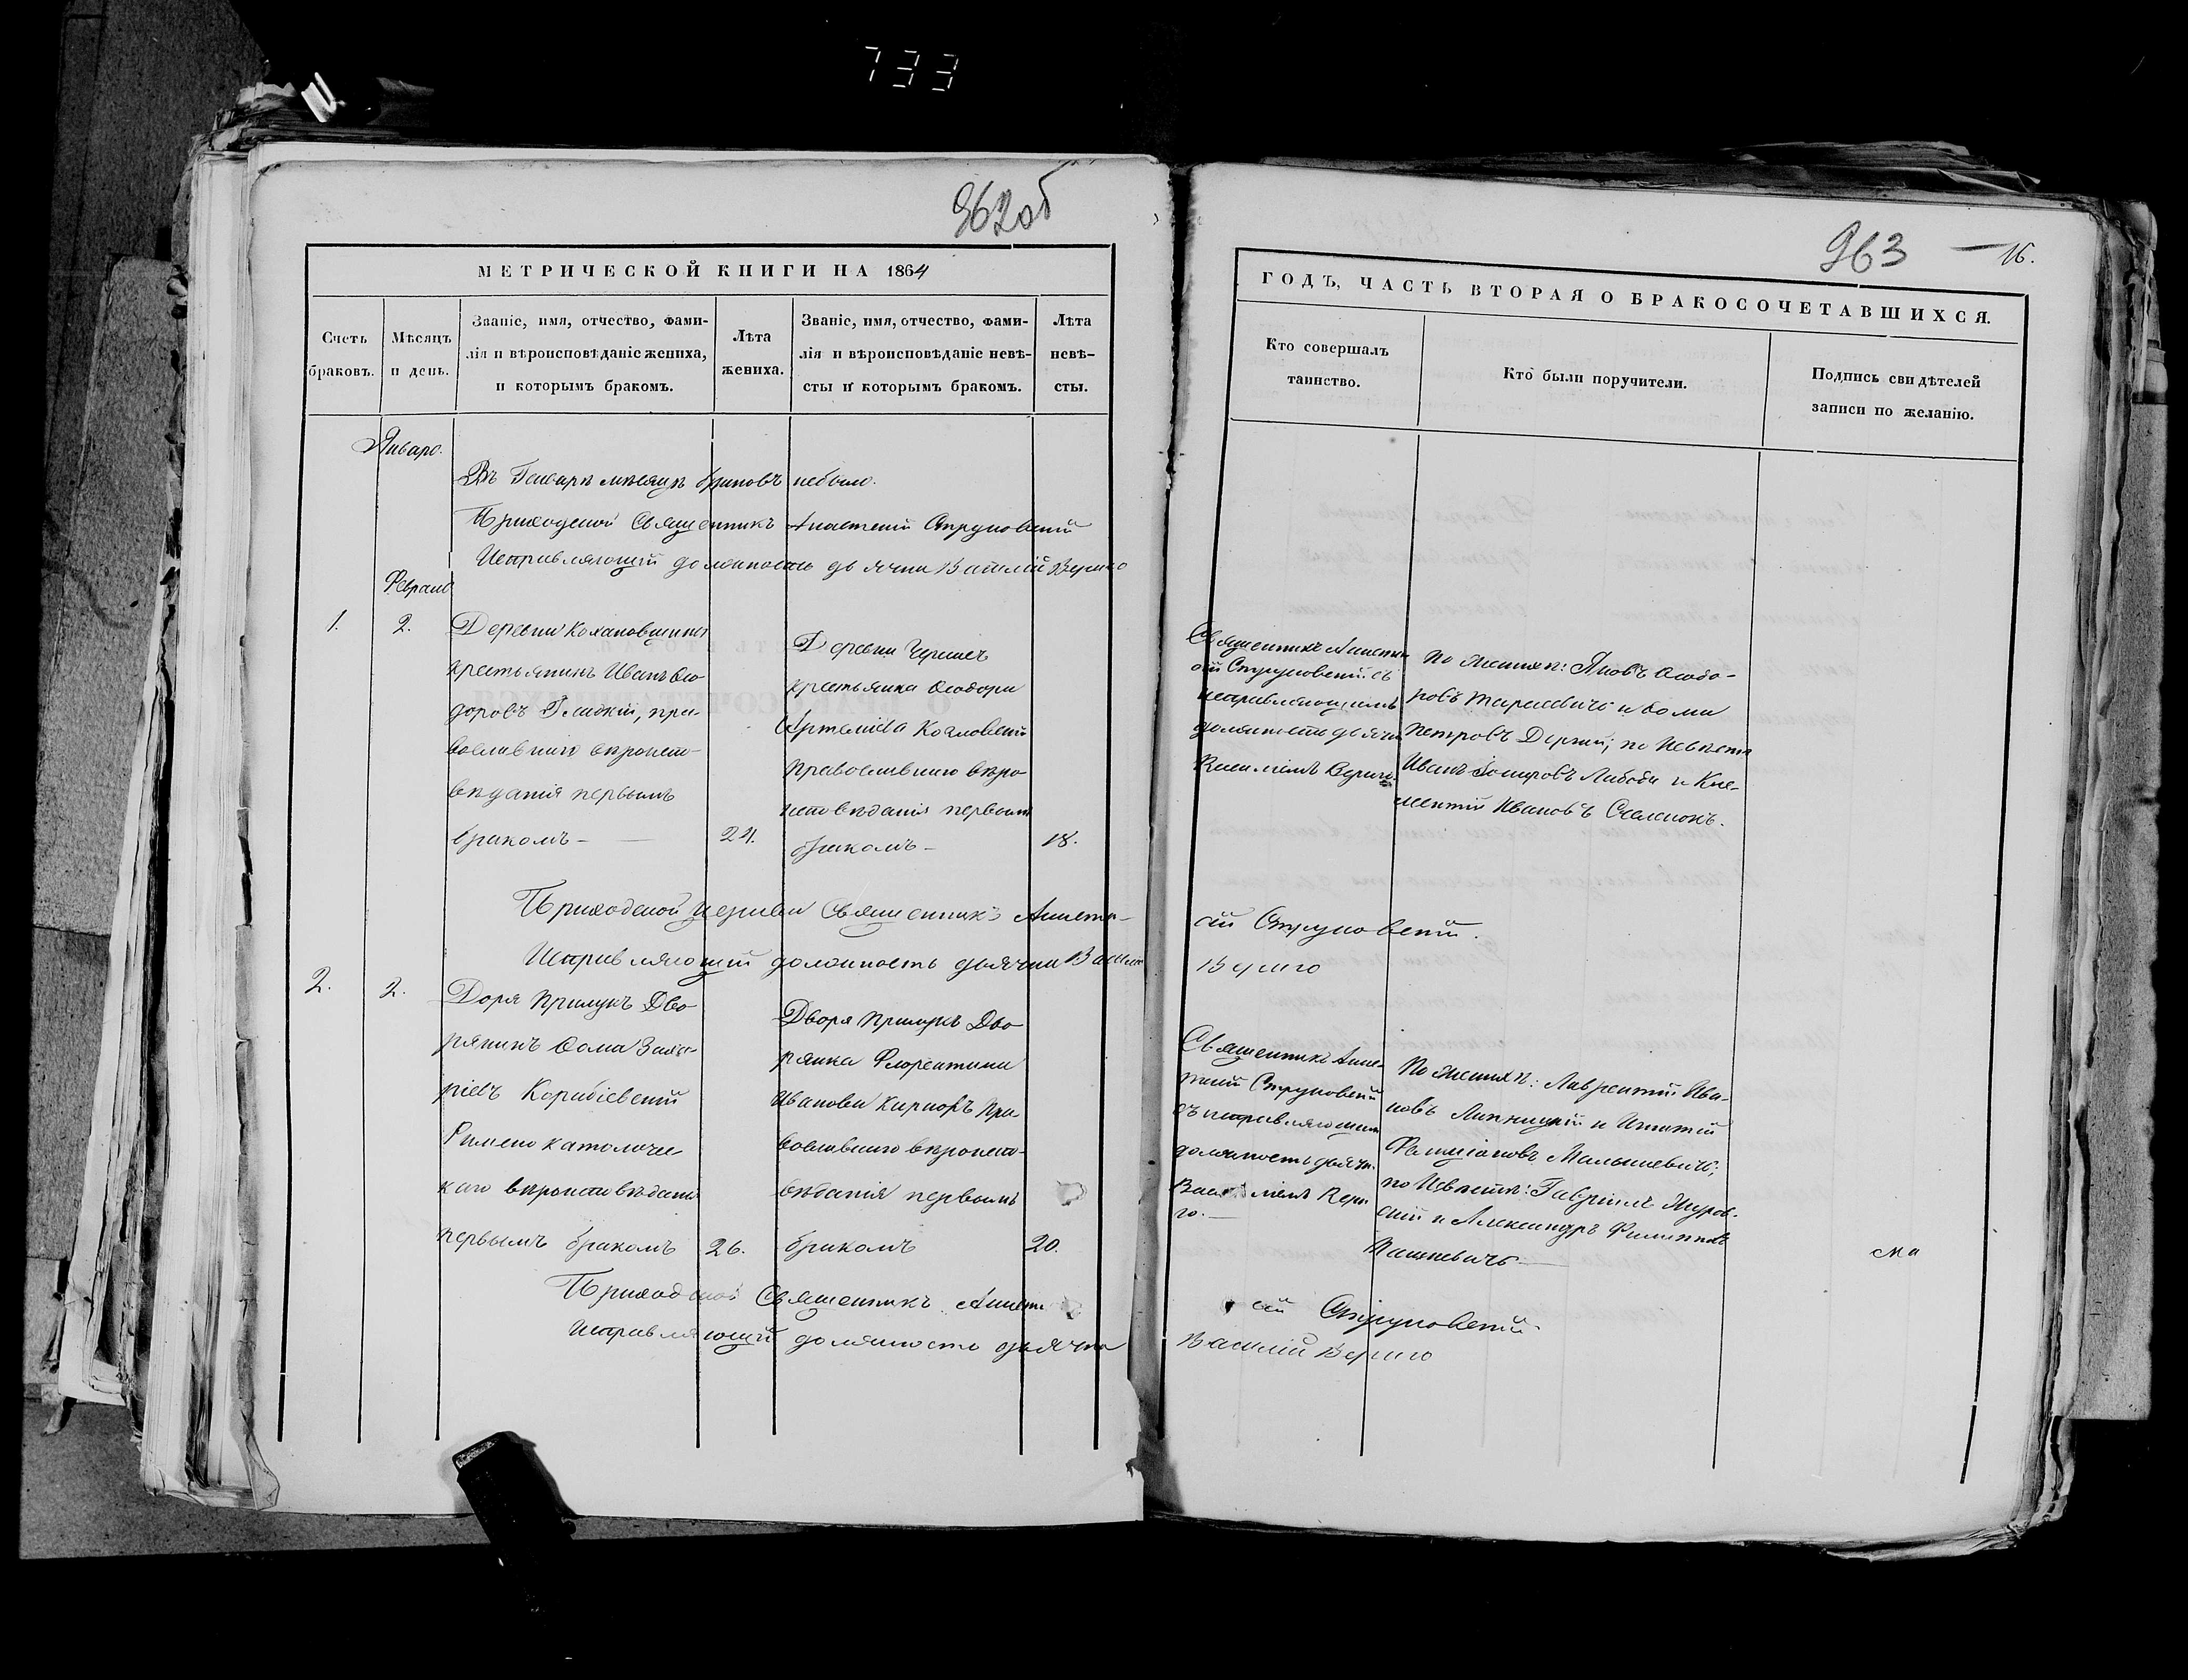 733
962об
МЕТРИЧЕСКОЙ КНИГИ НА 1864
Счетъ браковъ.
Мѣсяцъ и день.
Званіе, имя, отчество, фами-
лія и вѣроисповѣданіе жениха,
и которымъ бракомъ.
Лѣта
жениха.
Званіе, имя, отчество, фами-
лія и вѣроисповѣданіе невѣ-
сты и которымъ бракомъ.
Лѣта
невѣ-
сты.
Январ.
Въ Генварѣ мѣсяцѣ браковъ небыло.
Приходской Священникъ Анастасій Струковскій
Исправляющій должность дьячка Василій Вериго
Февраль
1.
2.
Деревни Кохановщины
крестьянинъ Иванъ Ѳео-
доровъ Гладкій, пра-
вославнаго вѣроиспо-
вѣданія первымъ
бракомъ-
24.
Деревни
крестьянка Ѳеодора
Артеміева
православнаго вѣро
исповѣданія первымъ
бракомъ-
18.
Приходской церкви Священникъ Анаста-
Исправляющій должность дьячка Васил
2.
2.
Двора Прилукъ Дво
рянинъ Ѳома
ріевъ
Римско католичес
каго вѣроисповѣданія
первымъ бракомъ
26.
Двора Прилукъ Дво
рянка Флорентина
Иванова пра
вославнаго вѣроиспо-
вѣданія первымъ
бракомъ
20.
Приходской Священникъ Анаста
Исправляющій должность дьячка
963 — 16.
ГОДЪ, ЧАСТЬ ВТОРАЯ О БРАКОСОЧЕТАВШИХСЯ.
Кто совершалъ
таинство.
Кто были поручители.
Подпись свидѣтелей
записи по желанію.
Священникъ Анаста
сій Струковскій съ
исправляющимъ
должность дьячка
Василіемъ Вериго.
По женихѣ: Яковъ Ѳеодо-
ровъ и Ѳома
Петровъ по невѣстѣ
Иванъ и Кле-
ментій Ивановъ
сій Струковскій.
Вериго
Священникъ Анас-
тасій Струковскій
съ исправляющимъ
должность дьячка
Василіемъ Вери
го.—
По женихѣ: Лаврентій Ива-
новъ и Игнатій
Малышевичъ;
по невѣстѣ: Гавріилъ
скій и Александръ Филипповъ
Пашкевичъ
сій Струковскій.
Василій Вериго